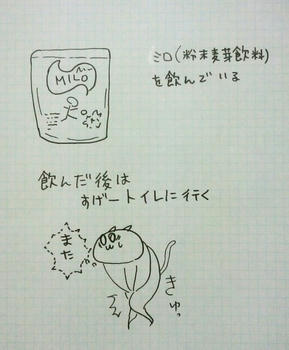 MILO
ミロ(粉末麦芽飲料)
を飲んでいる
飲んだ後は
すげートイレに行く
また
きゅっ